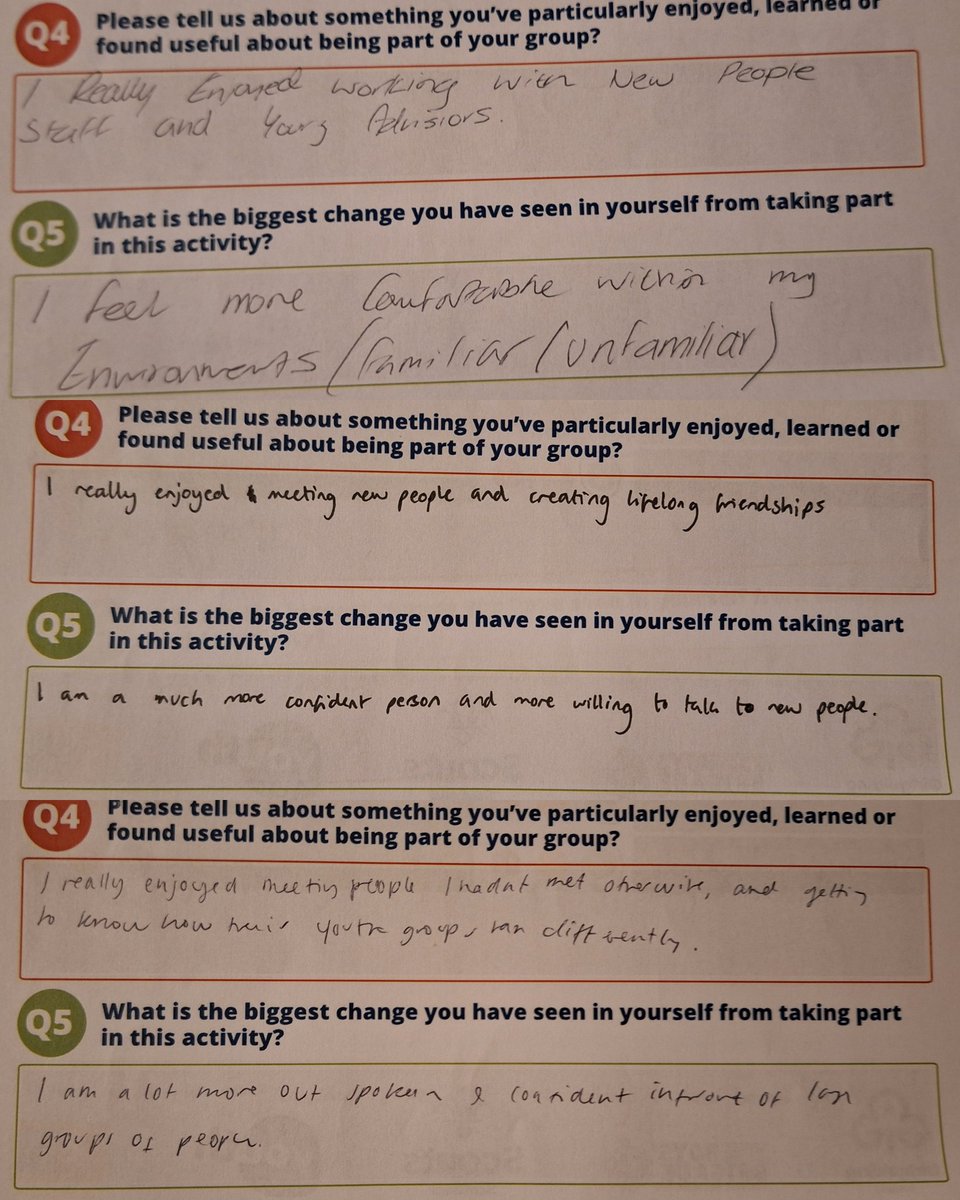 Q4 Please tell us about something you've particularly enjoyed, learned or
found useful about being part of your group?
I Really Enjoyed working with New People
Staff and Young Advisiors.
Q5 What is the biggest change you have seen in yourself from taking part
in this activity?
I feel more Comfortable within my
Environments/(familiar/unfamiliar)
Q4 Please tell us about something you've particularly enjoyed, learned or
found useful about being part of your group?
I really enjoyed meeting new people and creating lifelong friendships
Q5 What is the biggest change you have seen in yourself from taking part
in this activity?
I am a much more confident person and more willing to talk to new people.
Q4 Please tell us about something you've particularly enjoyed, learned or
found useful about being part of your group?
I really enjoyed meeting people I hadnt met otherwise, and getting
to know how their youth groups ran differently.
Q5 What is the biggest change you have seen in yourself from taking part
in this activity?
I am a lot more out spoken & confident infront of
groups of people.